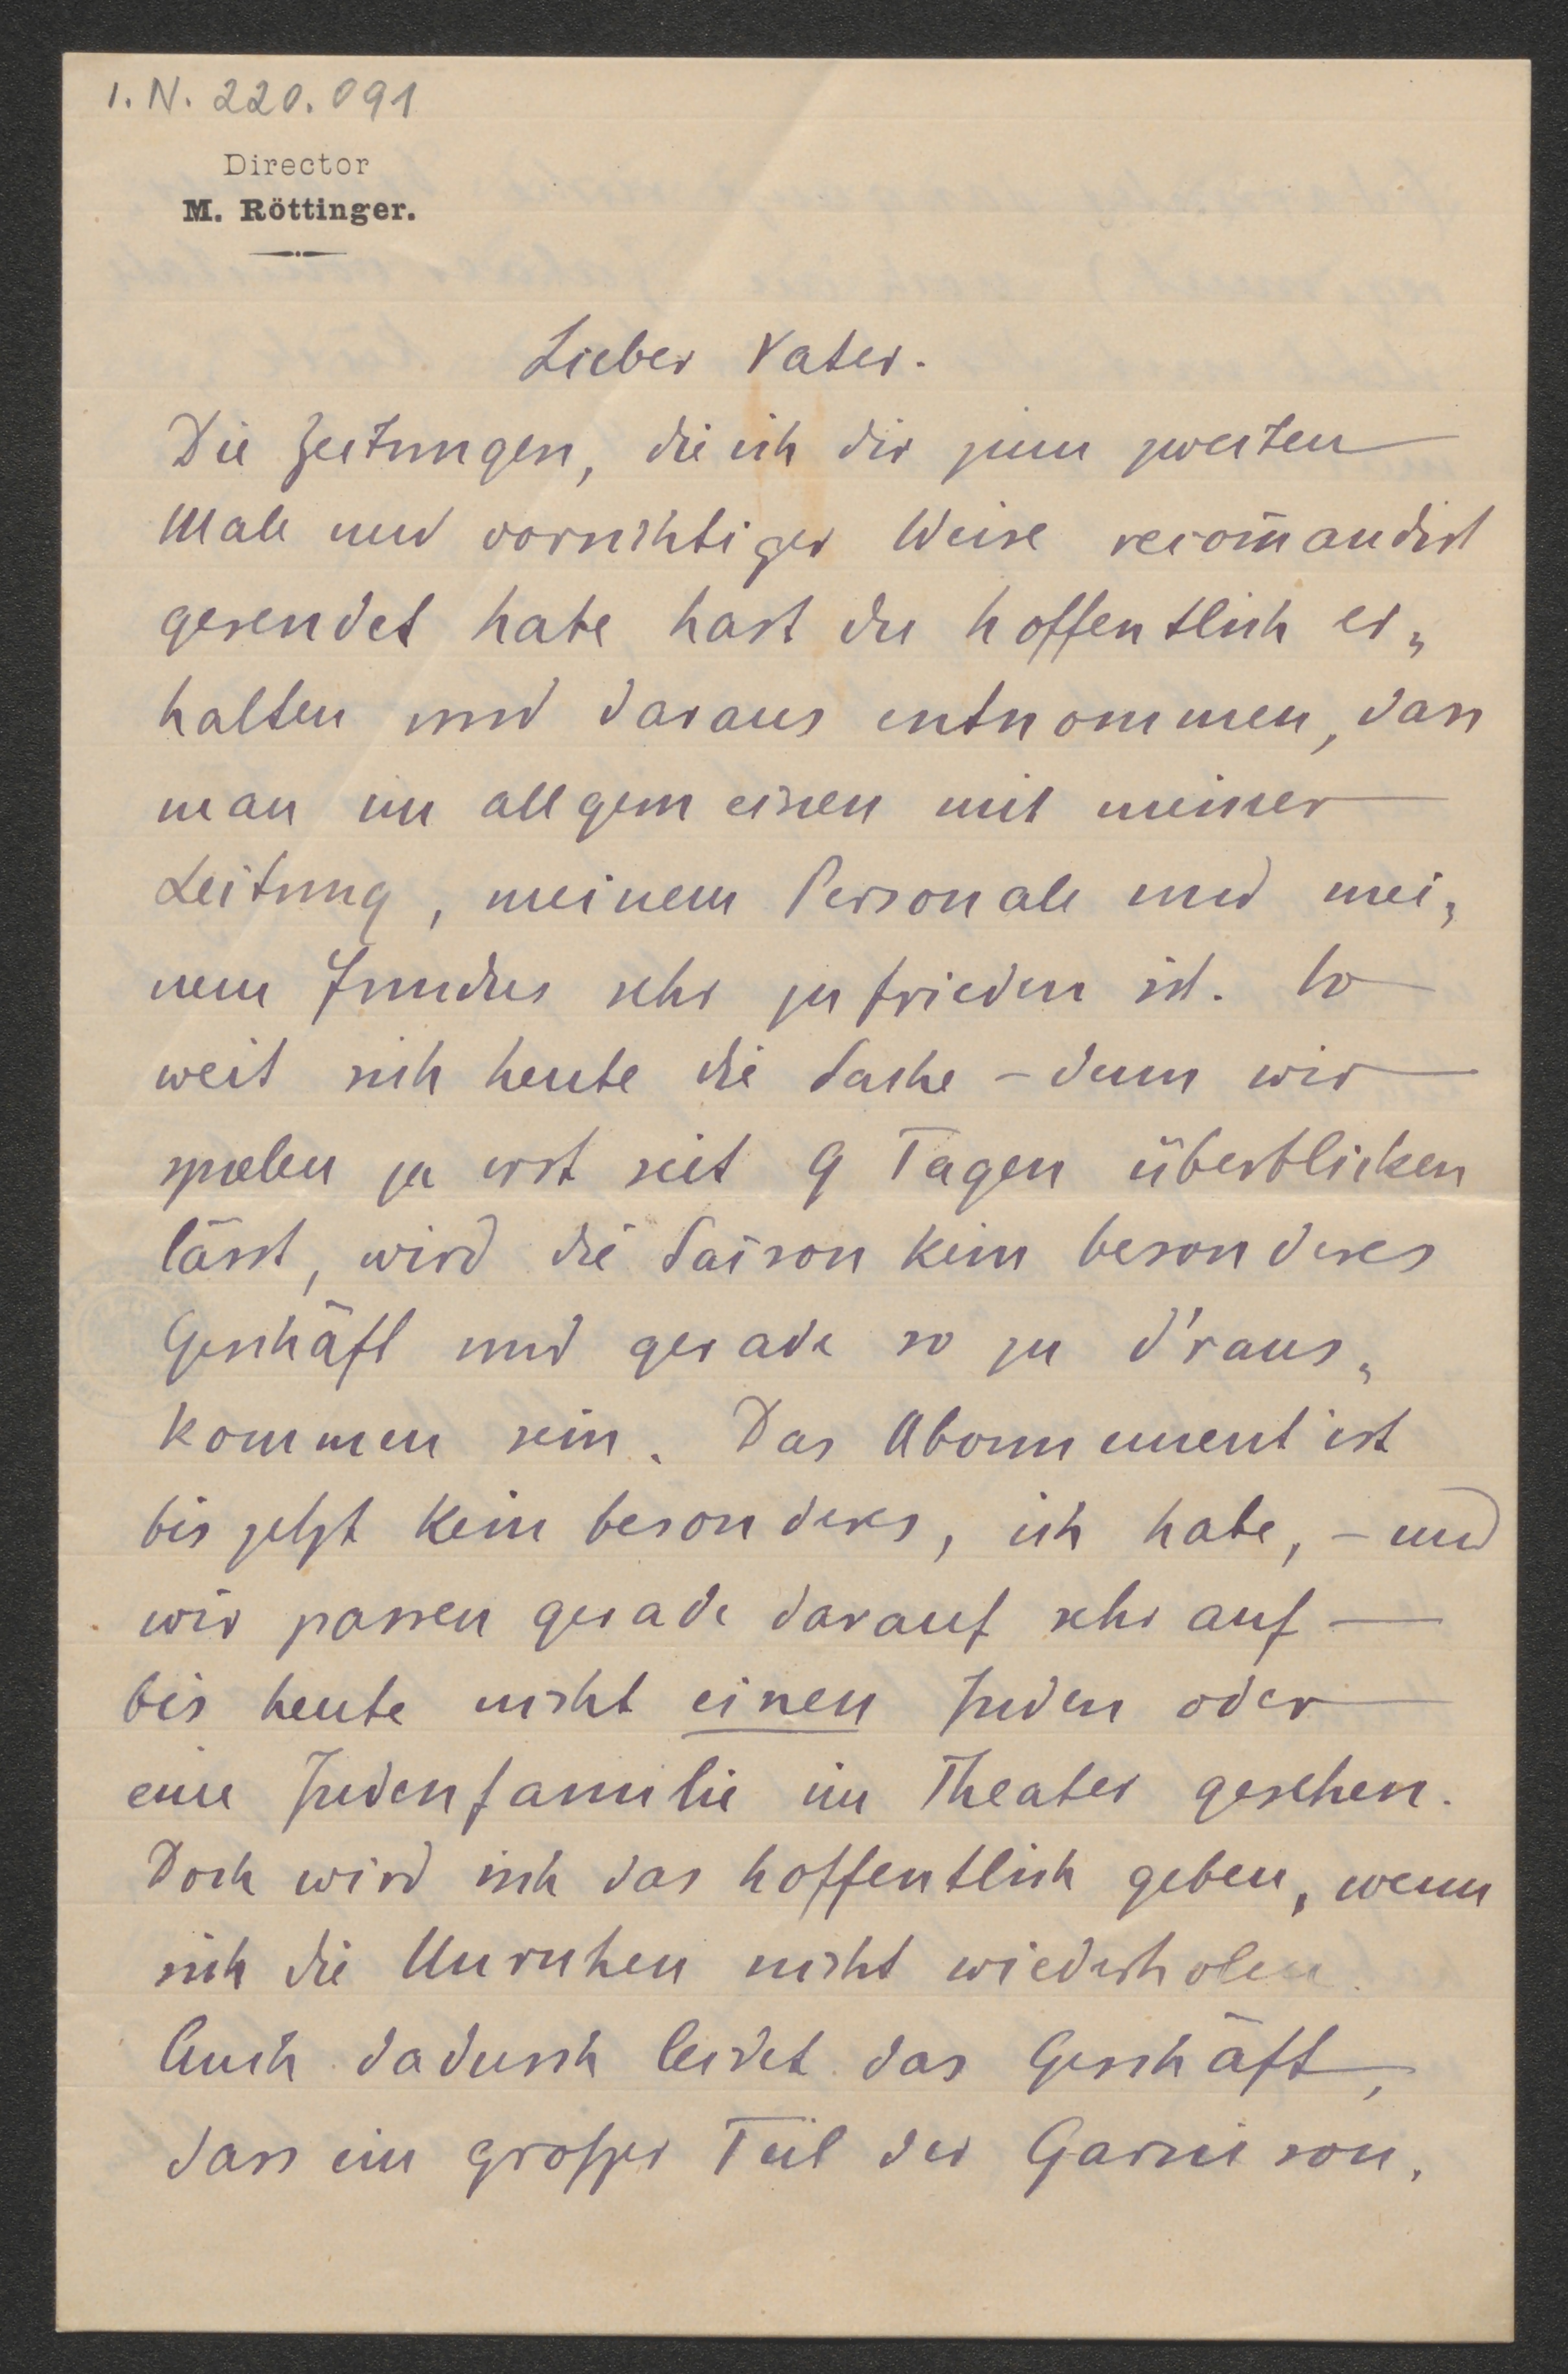 I.N. 220.091
Director
M. Röttinger.
Lieber Vater.
Die Zeitungen, die ich dir zum zweiten
Male und vorsichtiger Weise recom̅andirt
gesendet habe hast du hoffentlich er„
halten und daraus entnommen, dass
man im allgemeinen mit meiner
Leitung, meinem Personale und mei„
nem Fundus sehr zufrieden ist. So
weit sich heute die Sache – denn wir
spielen ja erst seit 9 Tagen überblicken
lässt, wird die Saison kein besonderes
Geschäft und gerade so zu d'raus„
kommen sein. Das Abonnement ist
bis jetzt kein besonderes, ich habe, – und
wir passen gerade darauf sehr auf –
bis heute nicht einen Juden oder
eine Judenfamilie im Theater gesehen.
Doch wird sich das hoffentlich geben, wenn
sich die Unruhen nicht wiederholen.
Auch dadurch leidet das Geschäft,
dass ein großer Teil der Garnison,